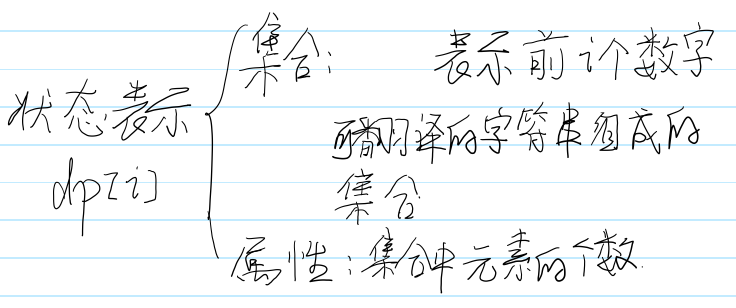 集合: 表示前i个数字
状态表示
可翻译的字符串组成的
dp[i]
集合
属性:集合中元素的个数.